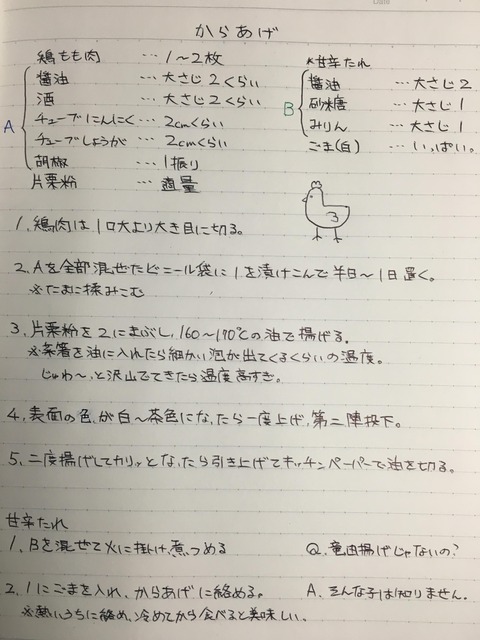 からあげ
鶏もも肉 … 1〜2枚
A
醤油 … 大さじ2くらい
酒 … 大さじ2くらい
チューブにんにく … 2cmくらい
チューブしょうが … 2cmくらい
胡椒 … 1振り
片栗粉 … 適量
*甘辛たれ
B
醤油 … 大さじ2
砂糖 … 大さじ1
みりん … 大さじ1
ごま(白) … いっぱい。
1. 鶏肉は1口大より大き目に切る。
2. Aを全部混ぜたビニール袋に1を漬けこんで半日〜1日置く。
※たまに揉みこむ
3. 片栗粉を2にまぶし、160〜170℃の油で揚げる。
※菜箸を油に入れたら細かい泡が出てくるくらいの温度。
じゅわ〜っと沢山でてきたら温度高すぎ。
4. 表面の色が白〜茶色になったら一度上げ、第二陣投下。
5. 二度揚げしてカリッとなったら引き上げてキッチンペーパーで油を切る。
甘辛たれ
1. Bを混ぜて火に掛け、煮つめる
2. 1にごまを入れ、からあげに絡める。
※熱いうちに絡め、冷めてから食べると美味しい。
Q. 竜田揚げじゃないの?
A. そんな子は知りません。